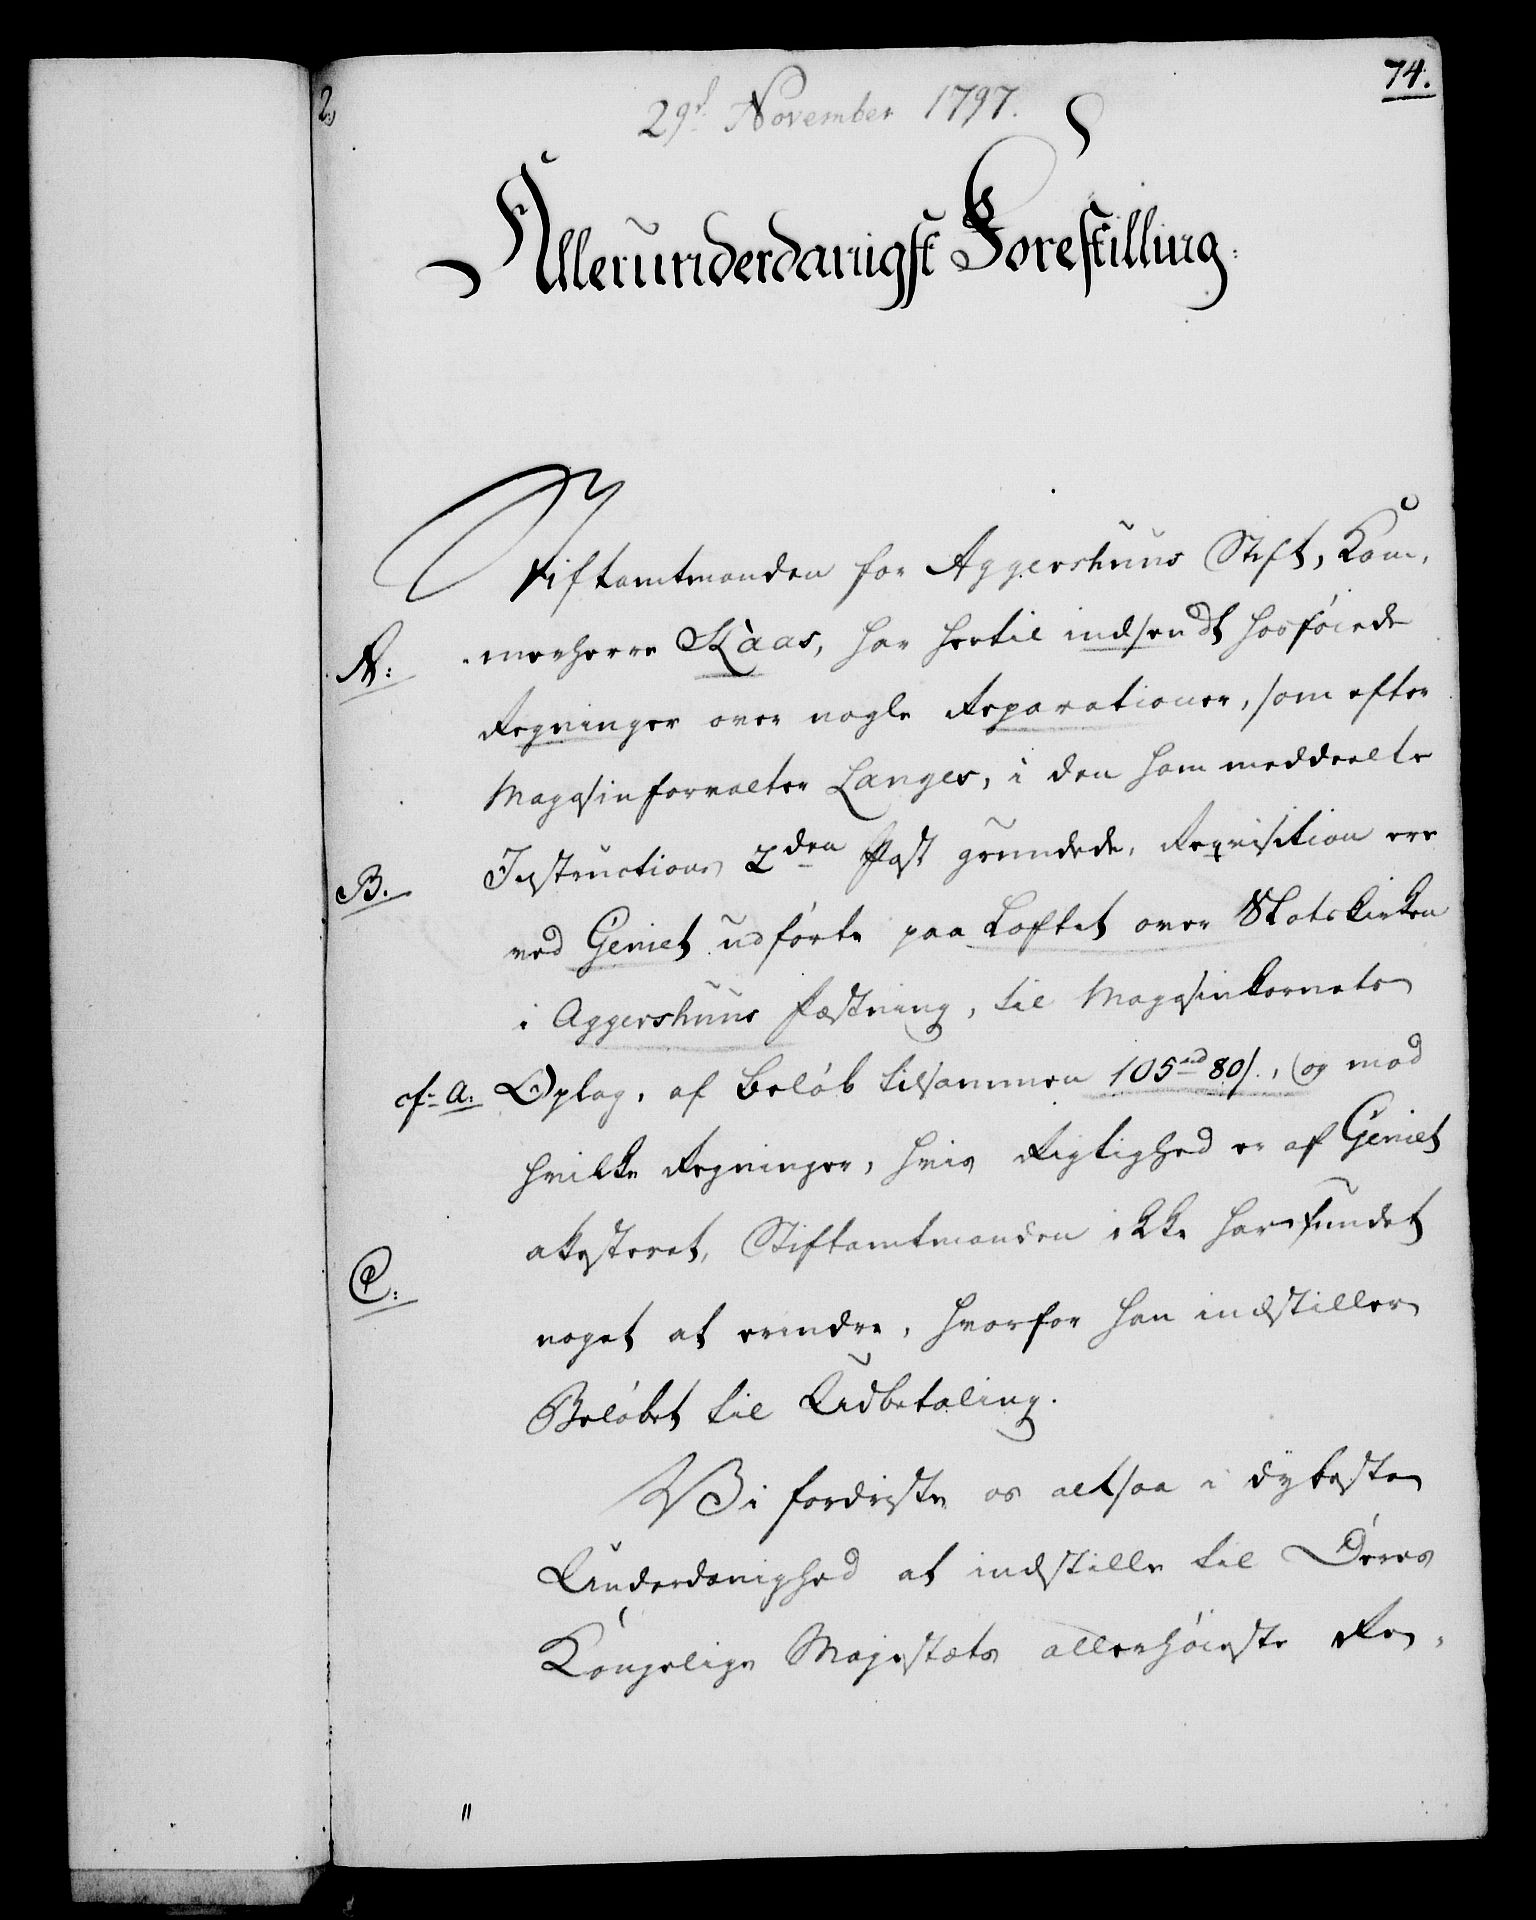 74.
29d. November 1797.
Allerunderdanigst Forestilling.
Stiftamtmanden for Aggershuus Stift, Kam-
A: merherre Kaas, har hertil indsendt hosföiede
Regninger over nogle Reparationer, som efter
Magasinforvalter Langes, i den ham meddeelte
B. Instructions 2den Post grundede, Reqvisition ere
ved Geniet udförte paa Loftet over Slotskirken
i Aggershuus Fæstning, til Magasinkornets
cf. a. Oplag, af Belöb tilsammen 105rd 80s., og mod
hvilke Regninger, hvis Rigtighed er af Geniet
C: attesteret, Stiftamtmanden ikke har fundet
noget at erindre, hvorfor han indstiller
Belöbet til Udbetaling.
Vi fordriste os altsaa i dybeste
Underdanighed at indstille til Deres
Kongelige Majestæts allerhöieste Re-